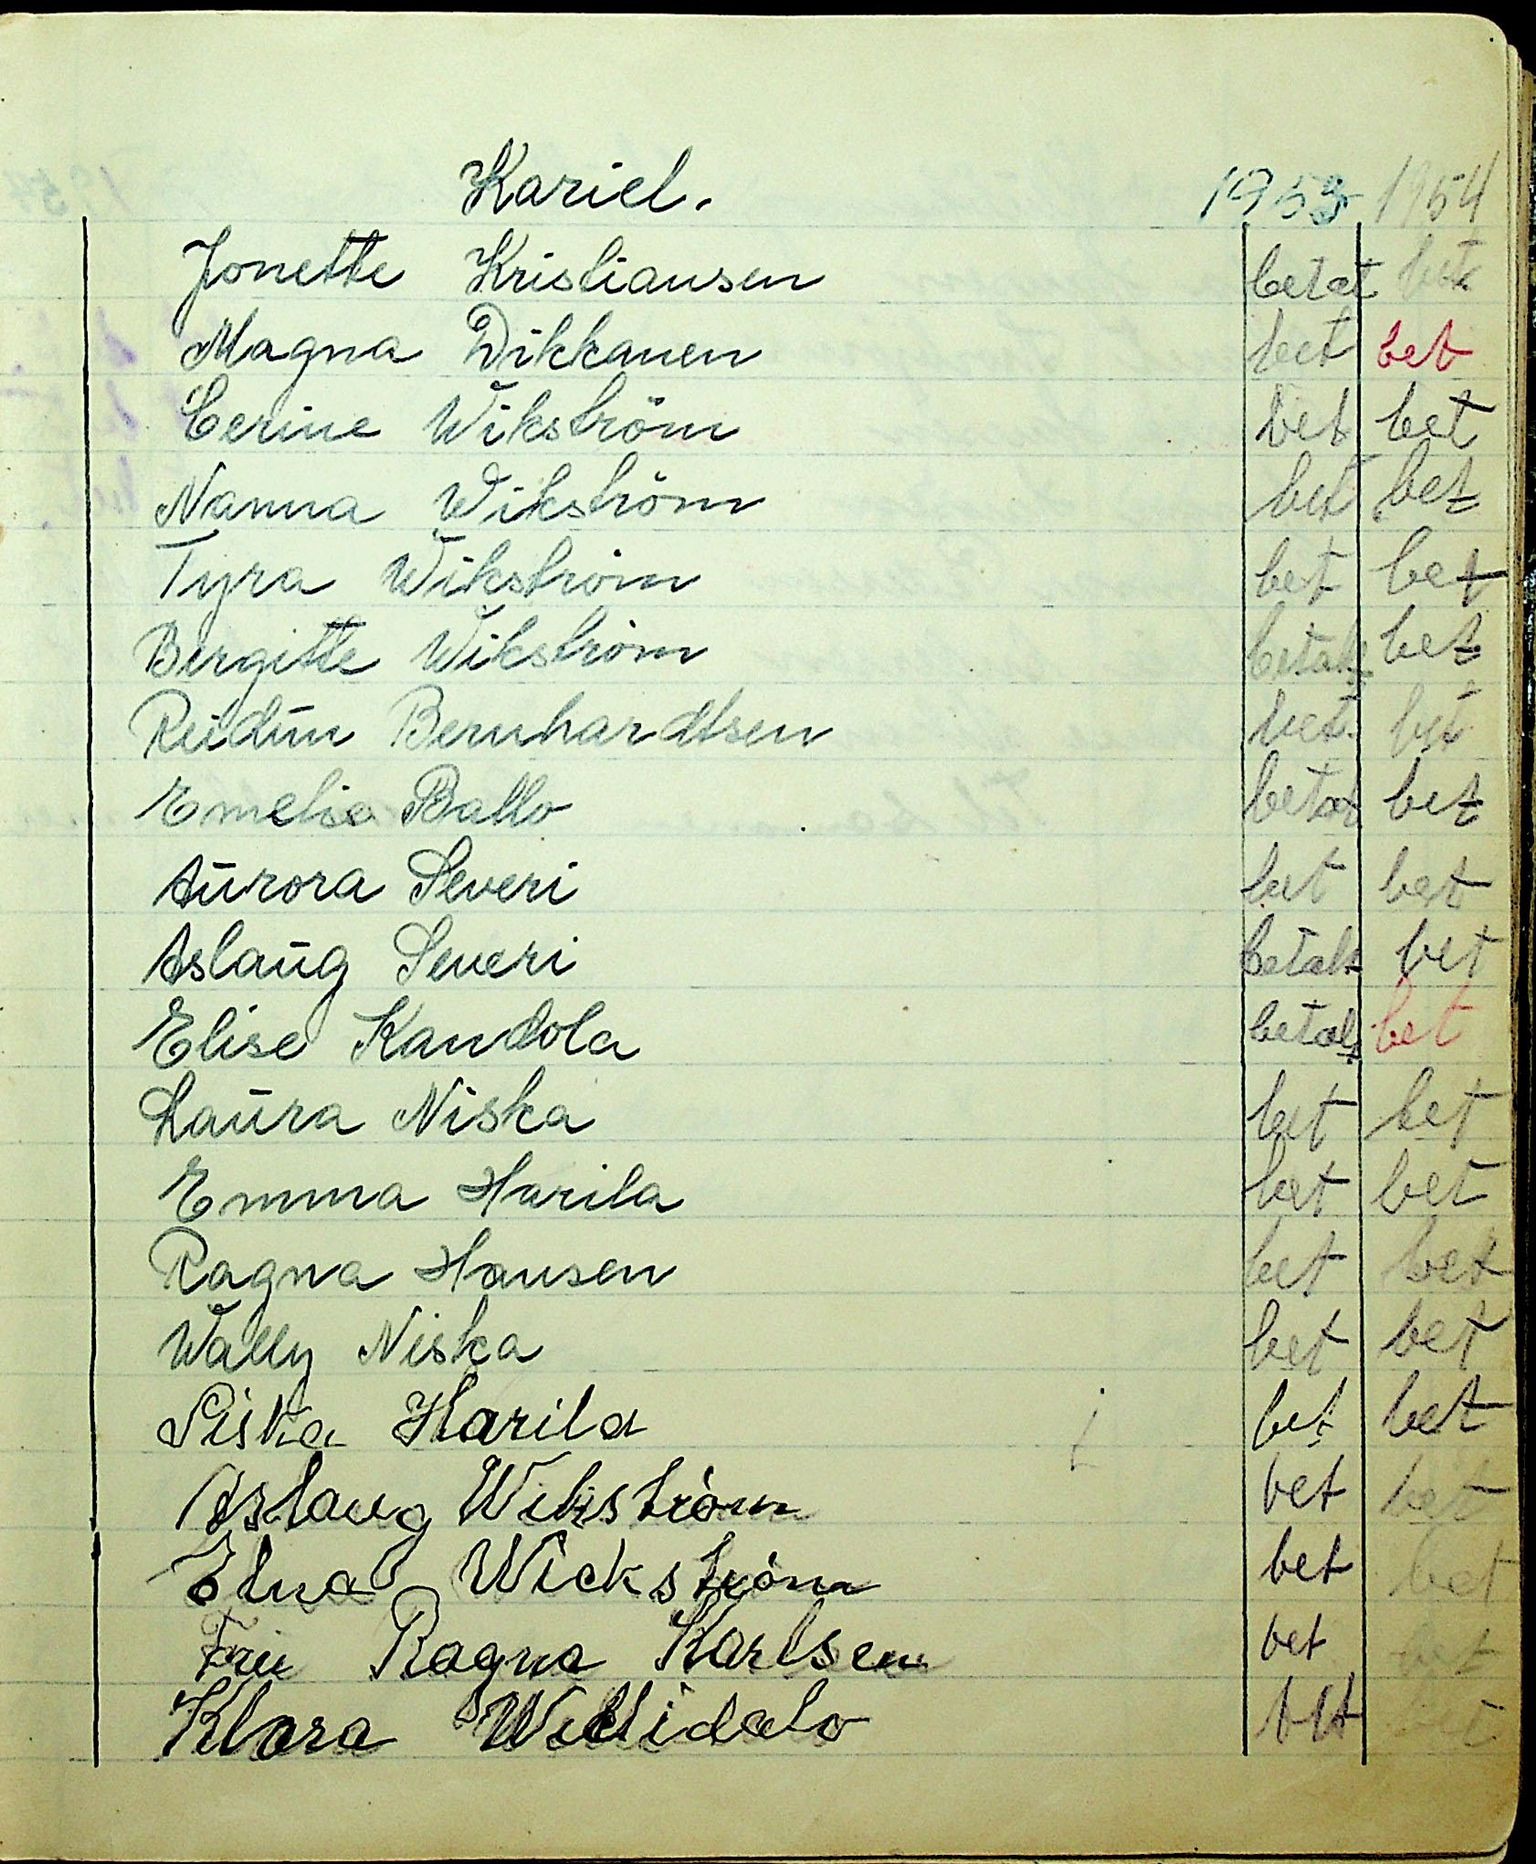 Kariel. 1953 1954
Jonette Kristiansen betat bet
Magna Dikkanen bet bet
Cerine Wikström bet bet
Nanna Wikström bet bet
Tyra Wikström bet bet
Birgitte Wikström betalt bet
Reidūn Bernhardtsen bet. bet
Emelie Ballo betat bet
Aūrora Severi bet bet
Aslaūg Severi betalt bet
Elise Kandola betalt bet
Laūra Niska bet bet
Emma Harila bet bet
Ragna Hansen bet bet
Wally Niska bet bet
Siska Harila bet bet
Aslaug Wikström bet bet
Elna Wickström bet bet
Fru Ragna Karlsen bet bet
Klara bet bet